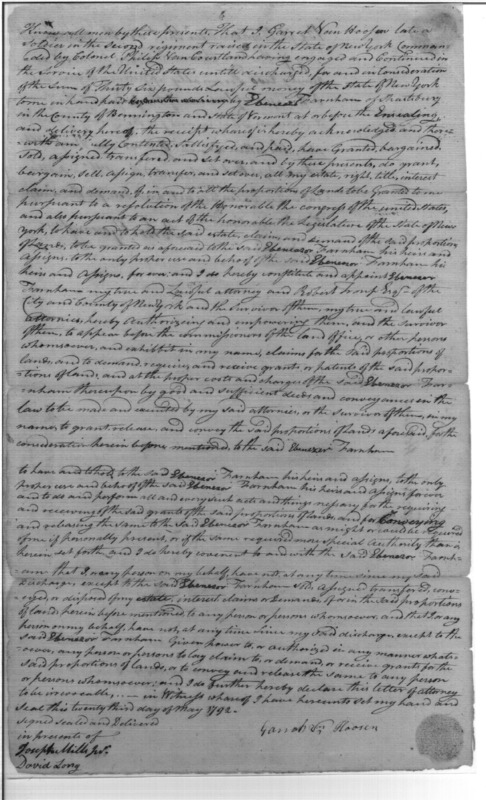 Know all men by these presents, That I, Garret Van Hoosen late a
Soldier in the second regiment raised in the State of New York Comman
ded by Colonel Philip Van Courtland having engaged and Continued in
the Service of the United States untill discharged, for and in Consideration
of the Sum of Thirty Six pounds Lawful money of the State of New York
to me in hand paid by Ebenezer Farnham of Shaftsbury
in the County of Bennington and State of Vermont at or before the Ensealing
and delivery hereof, the receipt whereof is hereby acknowledged and there
with am fully Contented, Sattisfied, and paid, have Granted, bargained,
Sold, assigned transfered, and set over, and by these presents, do grant,
bargain, Sell, assign, transfer, and set over, all my estate, right, title, interest
claim, and demand, of in and to all the proportions of Land to be Granted to me
pursuant to a resolution of the Honorable the Congress of the united States,
and also pursuant to an act of the honorable the Legislature of the State of New
York, to have and to hold the said estate, claim, and demand of the said proportion
of Lands, to be granted as aforesaid to the said Ebenezer Farnham his heirs and
Assigns, to the only proper use and behoof of the said Ebenezer Farnham his
heirs and Assigns, for ever, and I do hereby constitute and appoint Ebenezer
Farnham my true and Lawful attorney and Robert Troup Esqr. of the
City and County of New York and the Survivor of them, my true and lawful
attornies, hereby Authorizing and empowering them, and the Survivor
of them, to appear before the Commissioners of the Land office, or other persons
whomsoever, and exhibit in my name, claims for the said proportions of
lands, and to demand, require, and receive grants, or patents of the said propor-
tions of land, and at the proper costs and charges of the said Ebenezer Far-
nham thereupon by good and sufficient deeds and conveyances in the
law to be made and executed by my said attornies, or the Survivor of them, in my
name, to grant, release, and convey the said proportions of lands aforesaid, for the
consideration herein before mentioned, to the said Ebenezer Farnham
to have and to hold, to the said Ebenezer Farnham his heirs and assigns, to the only
proper use and behoof of the said Ebenezer Farnham his heirs and Assigns forever
and to do and perform all and every such acts and things necessary for the requiring
and receiving of the said grants of the said proportions of lands and for Conveying
and releasing the same to the said Ebenezer Farnham as might or could be required
of me if personally present, or if the same required more special Authority than is
herein set forth, and I do hereby covenant to and with the said Ebenezer Farnh-
am that I or any person on my behalf, have not, at any time since my said
discharge, except to the said Ebenezer Farnham Sold, Assigned transfered, conv-
eyed, or disposed of my estate, interest claims or demands of in the said proportions
of lands herein before mentioned to any person or persons whomsoever, and that I or any
person on my behalf, have not, at any time since my said discharge, except to the
said Ebenezer Farnham Given power to, or authorized in any manner whats-
oever, any person or persons to lay claim to, or demand, or receive grants for the
said proportions of lands, or to convey and release the same to any person
or persons whomsoever, and I do further hereby declare this letter of attorney
to be irrevocable, — in Witness whereof I have hereunto set my hand and
Seal this twenty third day of May 1792-
Signed sealed and Delivered
in presents of
Garrat Vn Hoosen
Joseph Mills Jr.
David Long